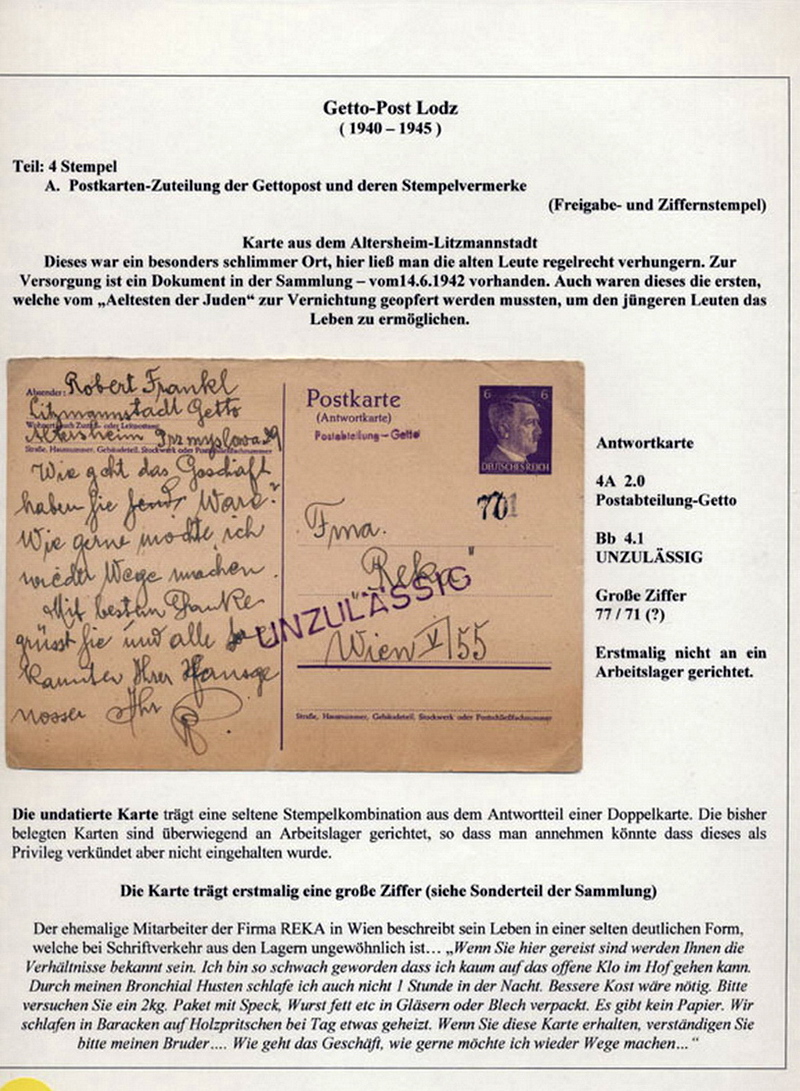 Getto-Post Lodz
( 1940 – 1945 )
Teil: 4 Stempel
A. Postkarten-Zuteilung der Gettopost und deren Stempelvermerke
(Freigabe- und Ziffernstempel)
Karte aus dem Altersheim-Litzmannstadt
Dieses war ein besonders schlimmer Ort, hier ließ man die alten Leute regelrecht verhungern. Zur
Versorgung ist ein Dokument in der Sammlung – vom14.6.1942 vorhanden. Auch waren dieses die ersten,
welche vom „Aeltesten der Juden“ zur Vernichtung geopfert werden mussten, um den jüngeren Leuten das
Leben zu ermöglichen.
Absender: Robert Frankl
Litzmannstadt Getto
Altersheim
Straße, Hausnummer, Gebäudeteil, Stockwerk oder Postschließfachnummer
Wie geht das Geschäft
haben Sie Ware?
Wie gerne möchte ich
wieder Wege machen.
Mit bestem Danke
grüsst Sie und alle
Ihr
Postkarte
(Antwortkarte)
Postabteilung-Getto
6 6
DEUTSCHES REICH
Fma.
"Reka"
UNZULÄSSIG
Wien V/55
Straße, Hausnummer, Gebäudeteil, Stockwerk oder Postschließfachnummer
Antwortkarte
4A 2.0
Postabteilung-Getto
Bb 4.1
UNZULÄSSIG
Große Ziffer
77 / 71 (?)
Erstmalig nicht an ein
Arbeitslager gerichtet.
Die undatierte Karte trägt eine seltene Stempelkombination aus dem Antwortteil einer Doppelkarte. Die bisher
belegten Karten sind überwiegend an Arbeitslager gerichtet, so dass man annehmen könnte dass dieses als
Privileg verkündet aber nicht eingehalten wurde.
Die Karte trägt erstmalig eine große Ziffer (siehe Sonderteil der Sammlung)
Der ehemalige Mitarbeiter der Firma REKA in Wien beschreibt sein Leben in einer selten deutlichen Form,
welche bei Schriftverkehr aus den Lagern ungewöhnlich ist… „Wenn Sie hier gereist sind werden Ihnen die
Verhältnisse bekannt sein. Ich bin so schwach geworden dass ich kaum auf das offene Klo im Hof gehen kann.
Durch meinen Bronchial Husten schlafe ich auch nicht 1 Stunde in der Nacht. Bessere Kost wäre nötig. Bitte
versuchen Sie ein 2kg. Paket mit Speck, Wurst fett etc in Gläsern oder Blech verpackt. Es gibt kein Papier. Wir
schlafen in Baracken auf Holzpritschen bei Tag etwas geheizt. Wenn Sie diese Karte erhalten, verständigen Sie
bitte meinen Bruder…. Wie geht das Geschäft, wie gerne möchte ich wieder Wege machen…“